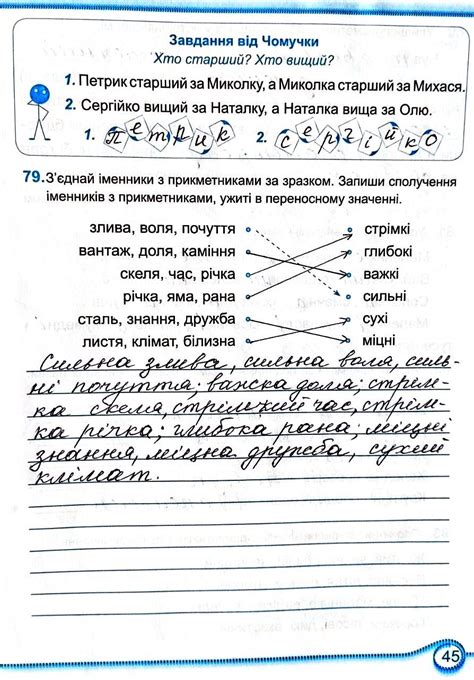 Завдання від Чомучки
Хто старший? Хто вищий?
1. Петрик старший за Миколку, а Миколка старший за Михася.
2. Сергійко вищий за Наталку, а Наталка вища за Олю.
1. Петрик 2. Сергійко
79. З'єднай іменники з прикметниками за зразком. Запиши сполучення
іменників з прикметниками, ужиті в переносному значенні.
злива, воля, почуття стрімкі
вантаж, доля, каміння глибокі
скеля, час, річка важкі
річка, яма, рана сильні
сталь, знання, дружба сухі
листя, клімат, білизна міцні
Сильна злива, сильна воля, силь-
ні почуття; важка доля; стрім-
ка скеля, стрімкий час, стрім-
ка річка; глибока рана; міцні
знання, міцна дружба, сухий
клімат.
45